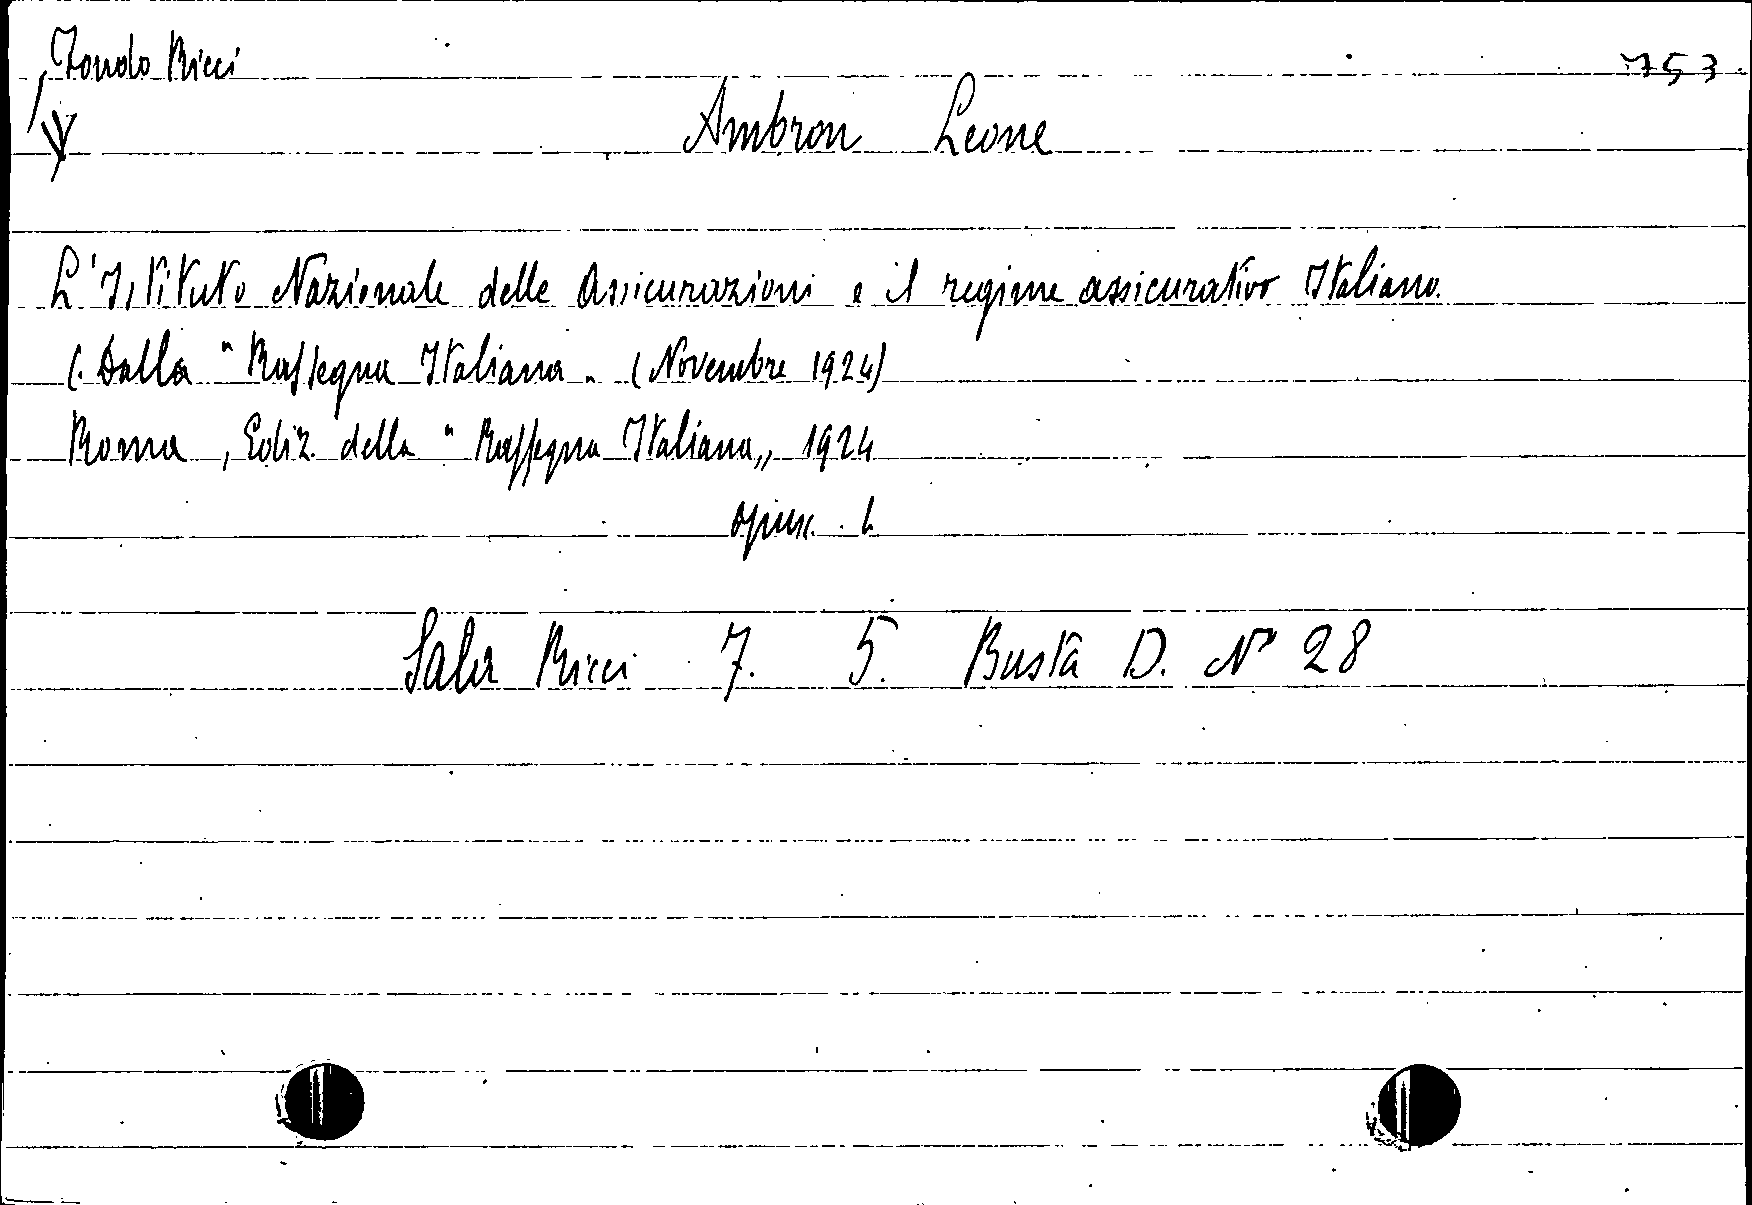 Fondo Ricci
753
Ambron Leone
L'Istituto Nazionale delle Assicurazioni e il regime assicurativo Italiano.
(Dalla "Rassegna Italiana" (Novembre 1924)
Roma, Ediz. della "Rassegna Italiana„ 1924
opusc.
Sala Ricci 7. 5. Busta D. N° 28